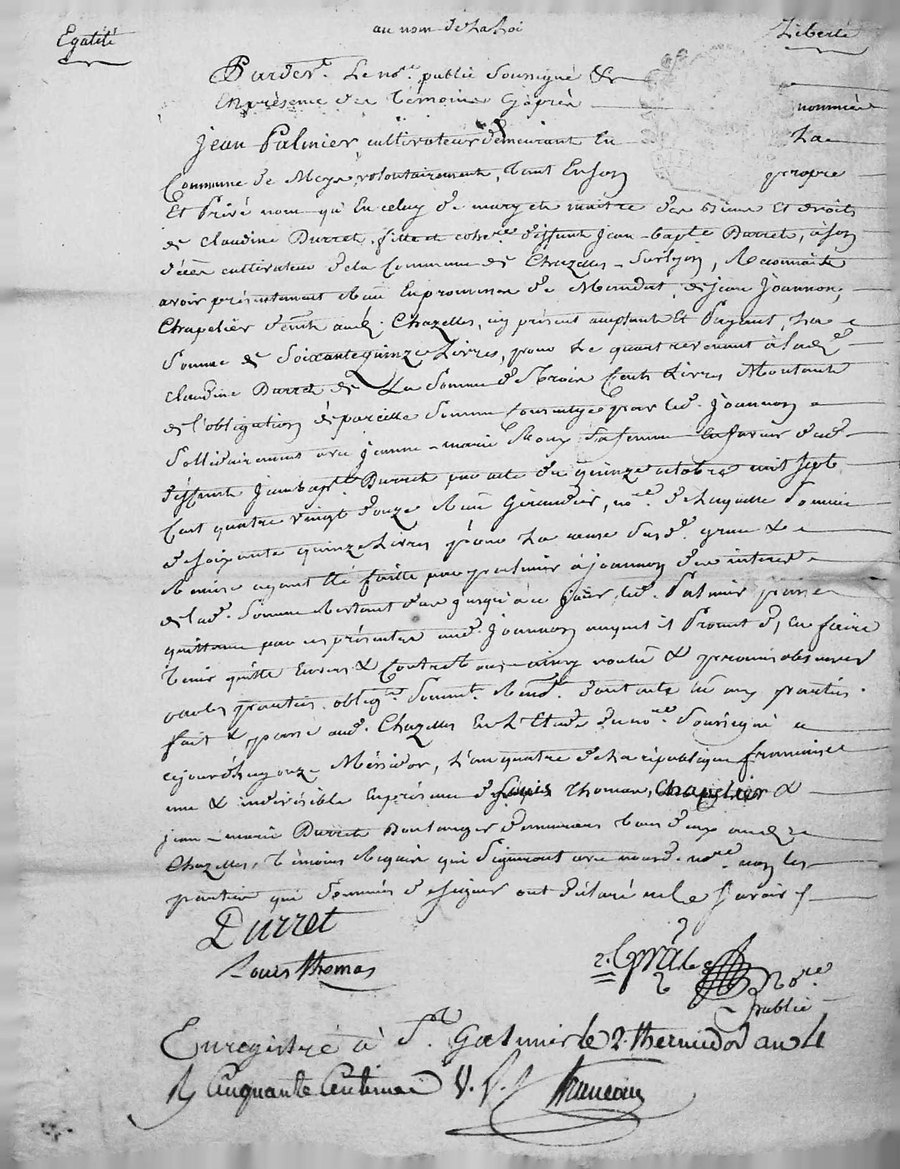 Egalité au nom de La Loi Liberté
Pardevt. Le nore. public Soussigné &
En présence des témoins Cy après nommés
Jean Palmier cultivateur demeurant En La
Commune de Meys, volontairement, tant En son propre
Et Privé nom qu'En celuy de mary et maitre des biens Et droits
de Claudine Durret, fille et cohére. deffunt jean-bapte. Durret, à son
décès cultivateur de la Commune de Chazelles-Surlyon, Reconnaît
avoir présentement Reçu En promesse de Mandat, de jean Joannon,
Chapelier demt. aud. Chazelles, icy présent acceptant Et Payant, La
Somme de Soixante quinze Livres, pour Le quart revenant à lade.
Claudine Durret de La Somme de trois Cents Livres Montant
de l'obligation de pareille Somme par led. Joannon
Sollidairement avec jeanne-marie Sa femme En faveur dud.
deffunt jeanbapt. Durret par acte du quinze octobre mil Sept
Cent quatre vingt douze Reçu nore. de Laquelle Somme
de soixante quinze Livres pour La cause Susd.
ayant été faitte par palmier à joannon des interets
de lad. Somme Restant dus jusqu'à ce jour, led. Palmier passe
quittance par ces présentes aud. Joannon auquel il Promet d'en faire
tenir quitte Envers & Contre tous ainsy voulu & promis observer
par les parties. obligns. Soumns. Renons. Dont acte
fait & passé aud. Chazelles En L'Etude du nore. Soussigné
cejourdhuy onze Méssidor, L'an quatre de la république francaise
une & indivisible En présence de Louis thomas, Chapelier &
jean-marie Durret Boulanger demeurans tous deux aud.
Chazelles, témoins Requis qui Signeront avec nousd. nore. non les
parties qui Sommées de signer ont déclaré ne le Savoir
Durret
Louis thomas
nore.
public
Enregistré à St. Galmier le 2 thermidor an 4
R Cinquante Centimes